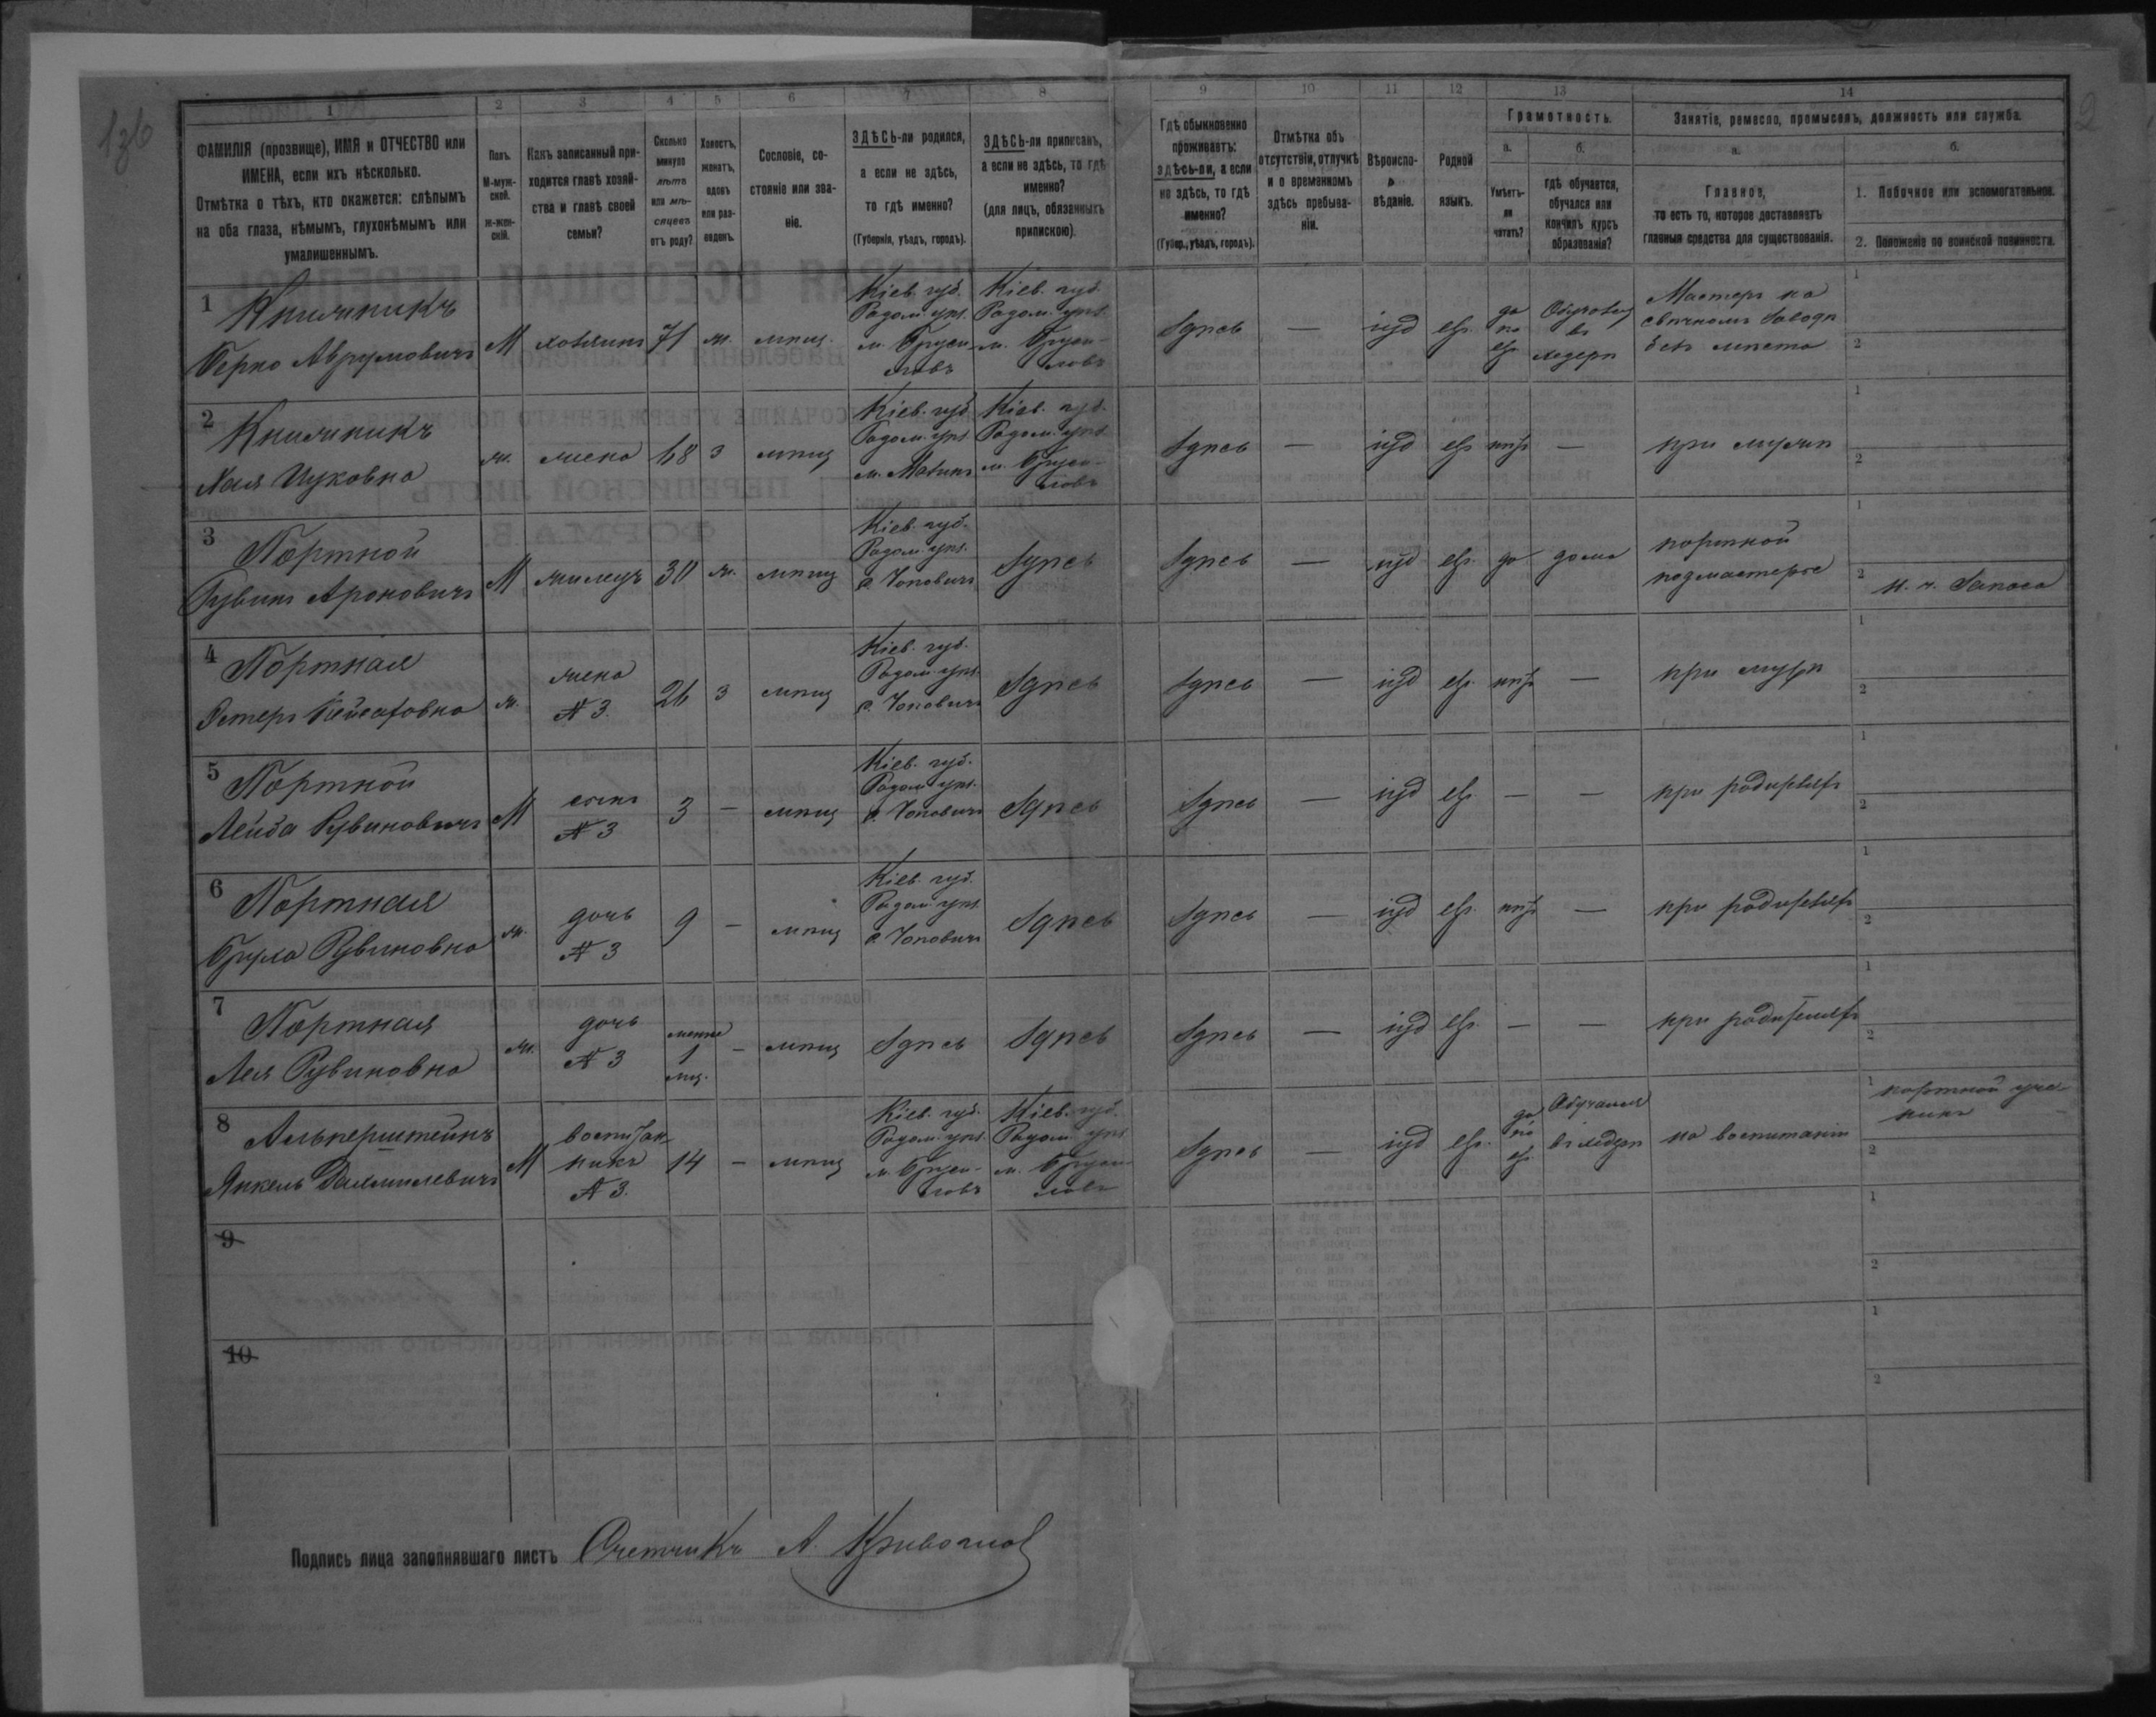 136
2
1 2 3 4 5 6 7 8 9 10 11 12 13 14
ФАМИЛІЯ (прозвище), ИМЯ и ОТЧЕСТВО или
ИМЕНА, если ихъ нѣсколько.
Отмѣтка о тѣхъ, кто окажется: слѣпымъ
на оба глаза, нѣмымъ, глухонѣмымъ или
умалишеннымъ.
Полъ.
М-муж-
ской.
ж-жен-
скій.
Какъ записанный при-
ходится главѣ хозяй-
ства и главѣ своей
семьи?
Сколько
минуло
лѣтъ
или мѣ-
сяцевъ
отъ роду?
Холостъ,
женатъ,
вдовъ
или раз-
веденъ.
Сословіе, со-
стояніе или зва-
ніе.
ЗДѢСЬ-ли родился,
а если не здѣсь,
то гдѣ именно?
(Губернія, уѣздъ, городъ).
ЗДѢСЬ-ли приписанъ,
а если не здѣсь, то гдѣ
именно?
(для лицъ, обязанныхъ
припискою).
Гдѣ обыкновенно
проживаетъ:
здѣсь-ли, а если
не здѣсь, то гдѣ
именно?
(Губер., уѣздъ, городъ).
Отмѣтка объ
отсутствіи, отлучкѣ
и о временномъ
здѣсь пребыва-
ніи.
Вѣроиспо-
вѣданіе.
Родной
языкъ.
Грамотность.
а.
Умѣетъ-
ли
читать?
б.
гдѣ обучается,
обучался или
кончилъ курсъ
образованія?
Занятіе, ремесло, промыселъ, должность или служба.
а.
Главное,
то есть то, которое доставляетъ
главныя средства для существованія.
б.
1. Побочное или вспомогательное.
2. Положеніе по воинской повинности.
1
Книжникъ
Берко Аврумовичъ
М
хозяинъ
71
ж.
мѣщ.
Кіев. губ.
Радом. уѣз.
м. Бруси-
ловъ
Кіев. губ.
Радом. уѣз.
м. Бруси-
ловъ
Здѣсь
—
іуд
евр.
да
по
евр
въ
хедерѣ
Мастеръ на
свѣчномъ заводѣ
безъ мѣста
1
2
2
Книжникъ
Хая Ицковна
ж.
жена
68
з
мѣщ
Кіев. губ
Радом. уѣз
м.
Кіев. губ.
Радом. уѣз
м. Бруси-
ловъ
Здѣсь
—
іуд
евр
нѣтъ
—
при мужѣ
1
2
3
Портной
Рувинъ Ароновичъ
М
жилецъ
30
ж.
мѣщ
Кіев. губ.
Радом. уѣз.
с. Чоповичъ
Здѣсь
Здѣсь
—
іуд
евр.
да
дома
портной
подмастерье
1
2
н. ч. запаса
4
Портная
Эстеръ
ж.
жена
№ 3.
26
з
мѣщ
Кіев. губ.
Радом. уѣз.
с. Чоповичъ
Здѣсь
Здѣсь
—
іуд
евр.
нѣтъ
—
при мужѣ
1
2
5
Портной
Лейба Рувиновичъ
М
сынъ
№ 3
3
—
мѣщ
Кіев. губ.
Радом. уѣз.
с. Чоповичъ
Здѣсь
Здѣсь
—
іуд
евр.
—
—
при родителяхъ
1
2
6
Портная
Рувиновна
ж.
дочь
№ 3
9
—
мѣщ
Кіев. губ.
Радом. уѣз
с. Чоповичъ
Здѣсь
Здѣсь
—
іуд
евр.
нѣтъ
—
при родителяхъ
1
2
7
Портная
Лея Рувиновна
ж.
дочь
№ 3
менѣе
1
мѣс.
—
мѣщ
Здѣсь
Здѣсь
Здѣсь
—
іуд
евр.
—
—
при родителяхъ
1
2
8
Альперштейнъ
Янкель
М
воспитан-
никъ
№ 3.
14
—
мѣщ
Кіев. губ.
Радом. уѣз.
м. Бруси-
ловъ
Кіев. губ.
Радом. уѣз
м. Бруси-
ловъ
Здѣсь
—
іуд
евр.
да
по
евр.
Обучался
въ хедерѣ
на воспитаніи
1
портной уче-
никъ
2
9
1
2
10
1
2
Подпись лица заполнявшаго листъ Счетчикъ А.